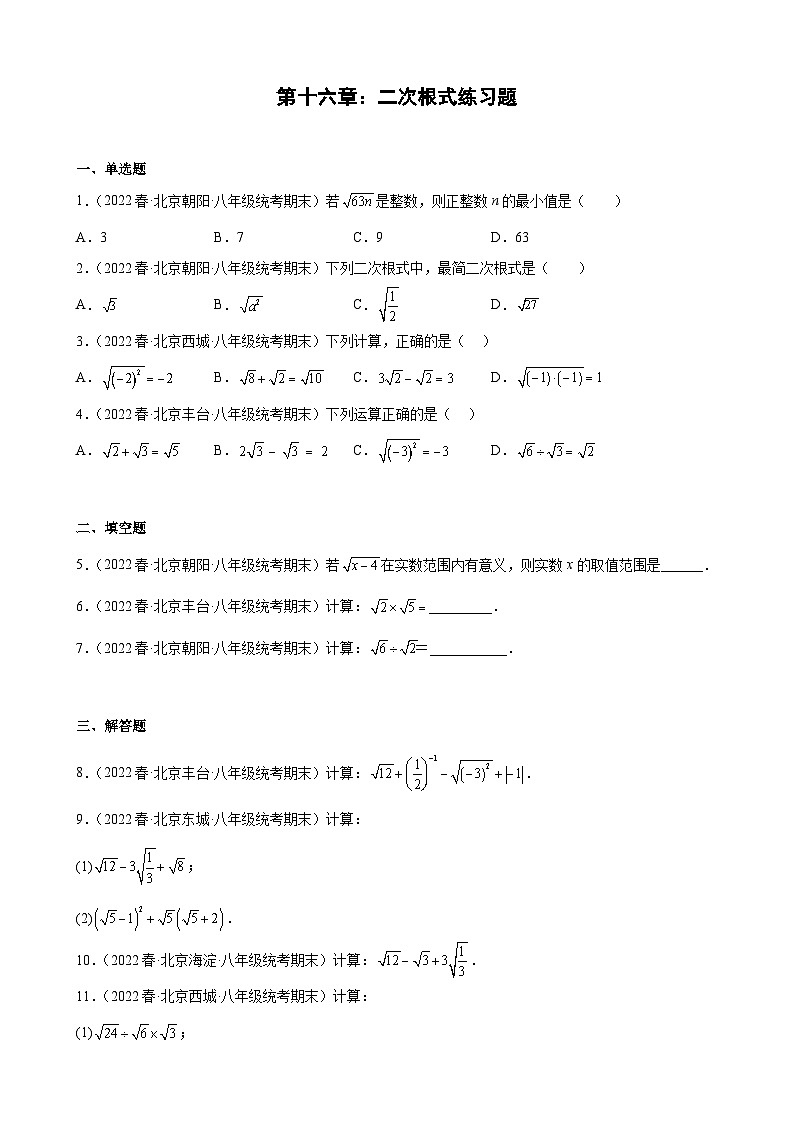 第十六章：二次根式练习题
一、单选题
1.（2022春·北京朝阳·八年级统考期末）若√(63n)是整数，则正整数n的最小值是（　　）
A．3　B．7　C．9　D．63
2.（2022春·北京朝阳·八年级统考期末）下列二次根式中，最简二次根式是（　　）
A．√3　B．√(a²)　C．√(1/2)　D．√27
3.（2022春·北京西城·八年级统考期末）下列计算，正确的是（　）
A．√((−2)²)=−2　B．√8+√2=√10　C．3√2−√2=3　D．√((−1)·(−1))=1
4.（2022春·北京丰台·八年级统考期末）下列运算正确的是（　）
A．√2+√3=√5　B．2√3−√3=2　C．√((−3)²)=−3　D．√6÷√3=√2
二、填空题
5.（2022春·北京朝阳·八年级统考期末）若√(x−4)在实数范围内有意义，则实数x的取值范围是______．
6.（2022春·北京丰台·八年级统考期末）计算：√2×√5=_________．
7.（2022春·北京朝阳·八年级统考期末）计算：√6÷√2=___________．
三、解答题
8.（2022春·北京丰台·八年级统考期末）计算：√12+(1/2)⁻¹−√((−3)²)+|−1|．
9.（2022春·北京东城·八年级统考期末）计算：
(1)√12−3√(1/3)+√8；
(2)(√5−1)²+√5(√5+2)．
10.（2022春·北京海淀·八年级统考期末）计算：√12−√3+3√(1/3)．
11.（2022春·北京西城·八年级统考期末）计算：
(1)√24÷√6×√3；